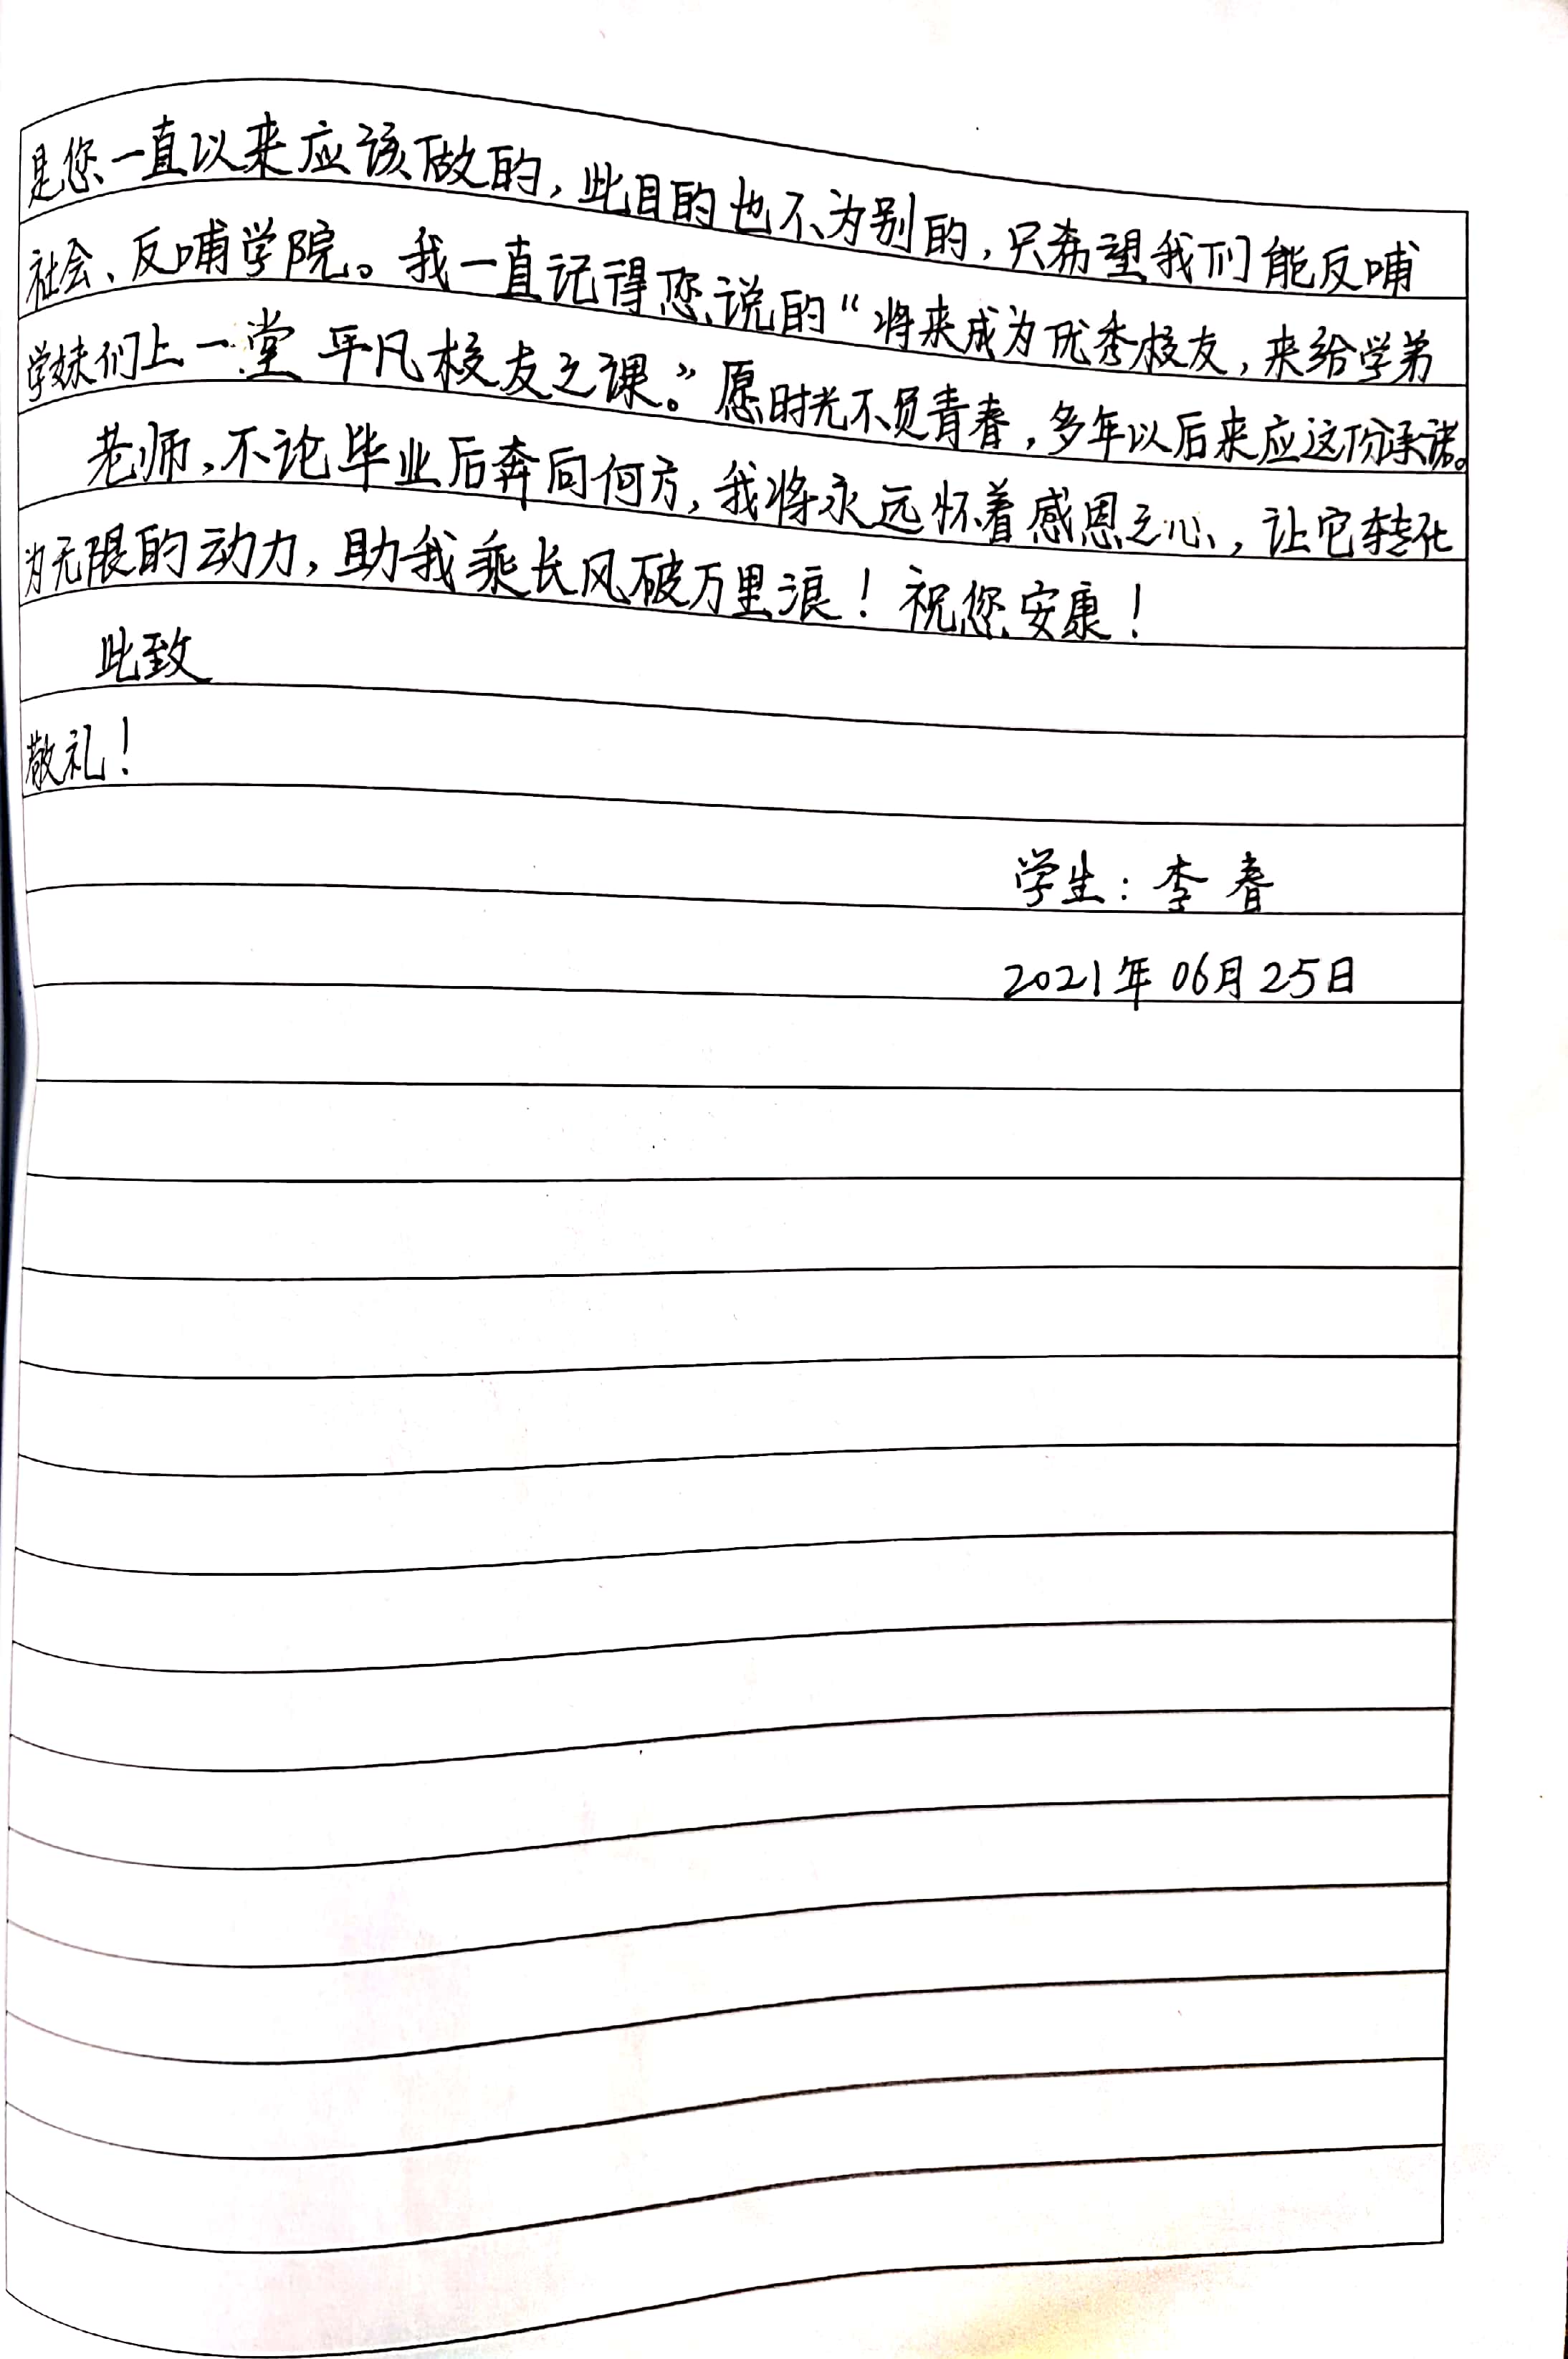 是您一直以来应该做的，此目的也不为别的，只希望我们能反哺
社会、反哺学院。我一直记得您说的“将来成为优秀校友，来给学弟
学妹们上一堂平凡校友之课。”愿时光不负青春，多年以后来应这份承诺。
老师，不论毕业后奔向何方，我将永远怀着感恩之心，让它转化
为无限的动力，助我乘长风破万里浪！祝您安康！
此致
敬礼！
学生：李春
2021年06月25日